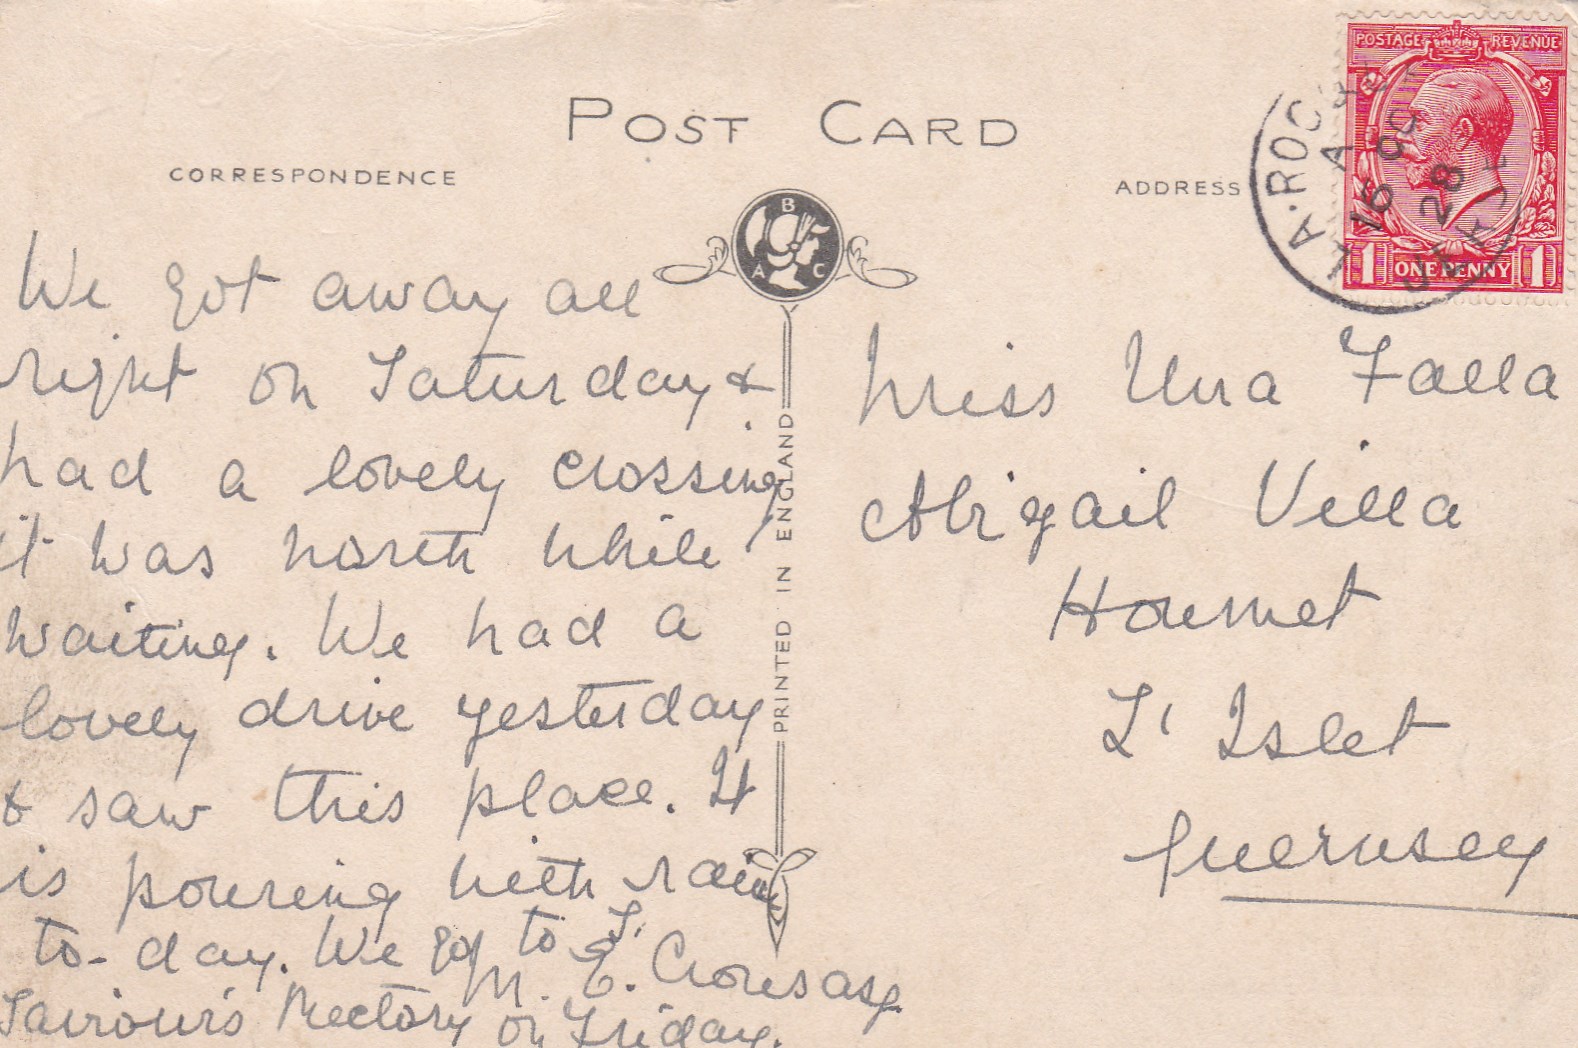 POST CARD
CORRESPONDENCE
ADDRESS
POSTAGE REVENUE
1 ONE PENNY 1
LA·ROC
16 OC
28
B
A C
PRINTED IN ENGLAND
We got away all
right on Saturday &
had a lovely crossing,
it was worth while
waiting. We had a
lovely drive yesterday
& saw this place. It
is pouring with rain
to-day. We go to St
Saviour's Rectory on Friday.
M. E.
Miss Una Falla
Abigail Villa
Houmet
L' Islet
Guernsey